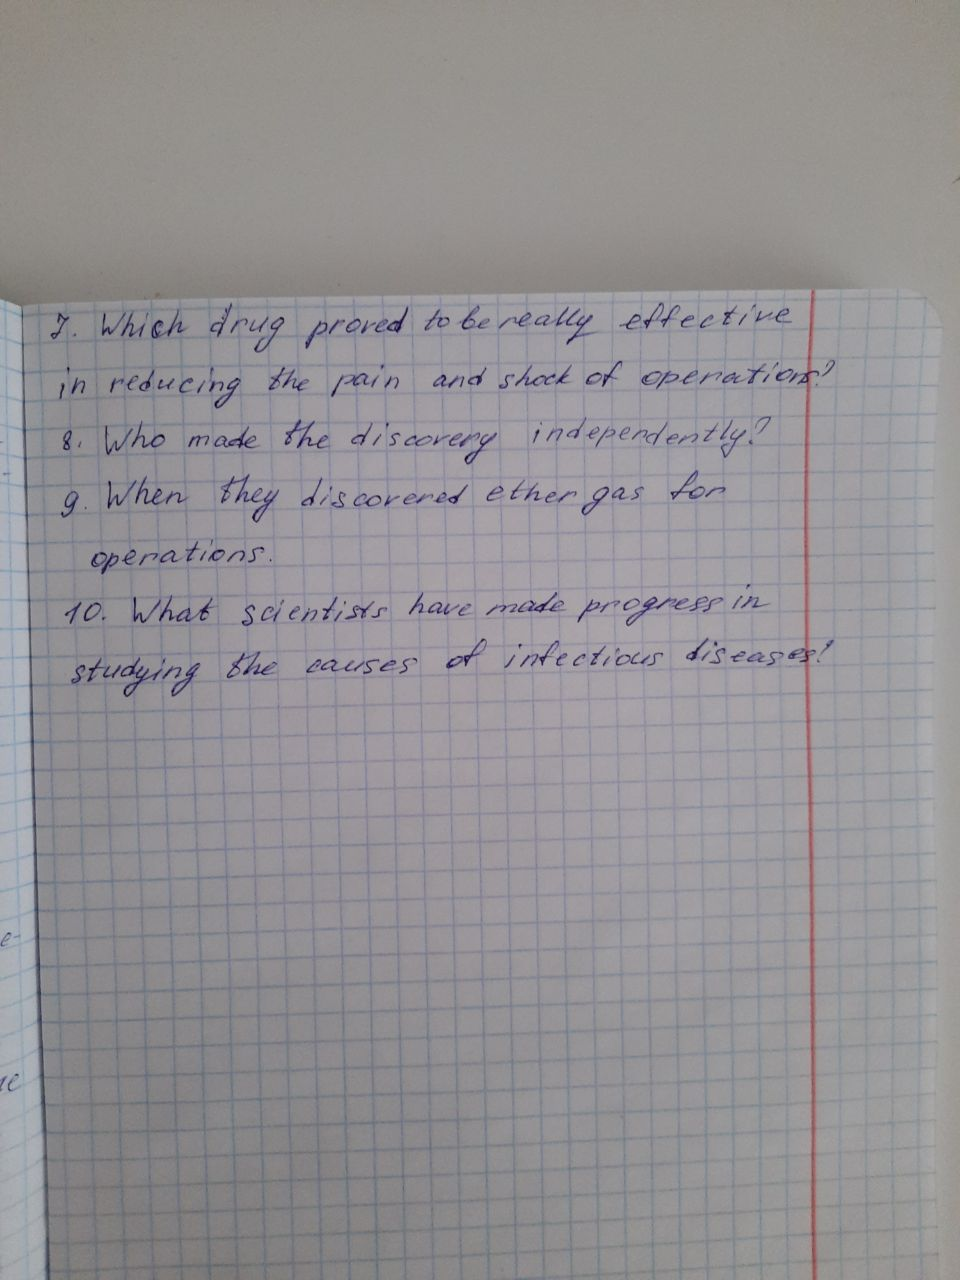 7. Which drug proved to be really effective
in reducing the pain and shock of operations?
8. Who made the discovery independently?
9. When they discovered ether gas for
operations.
10. What scientists have made progress in
studying the causes of infectious diseases?
e-